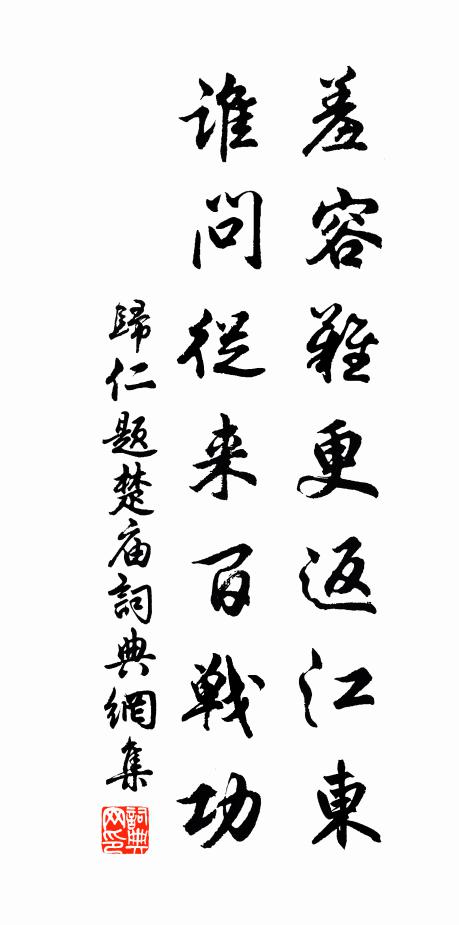 羞容難更返江東
誰問從来百戦功
歸仁題楚庙詞典網集
詞典网印